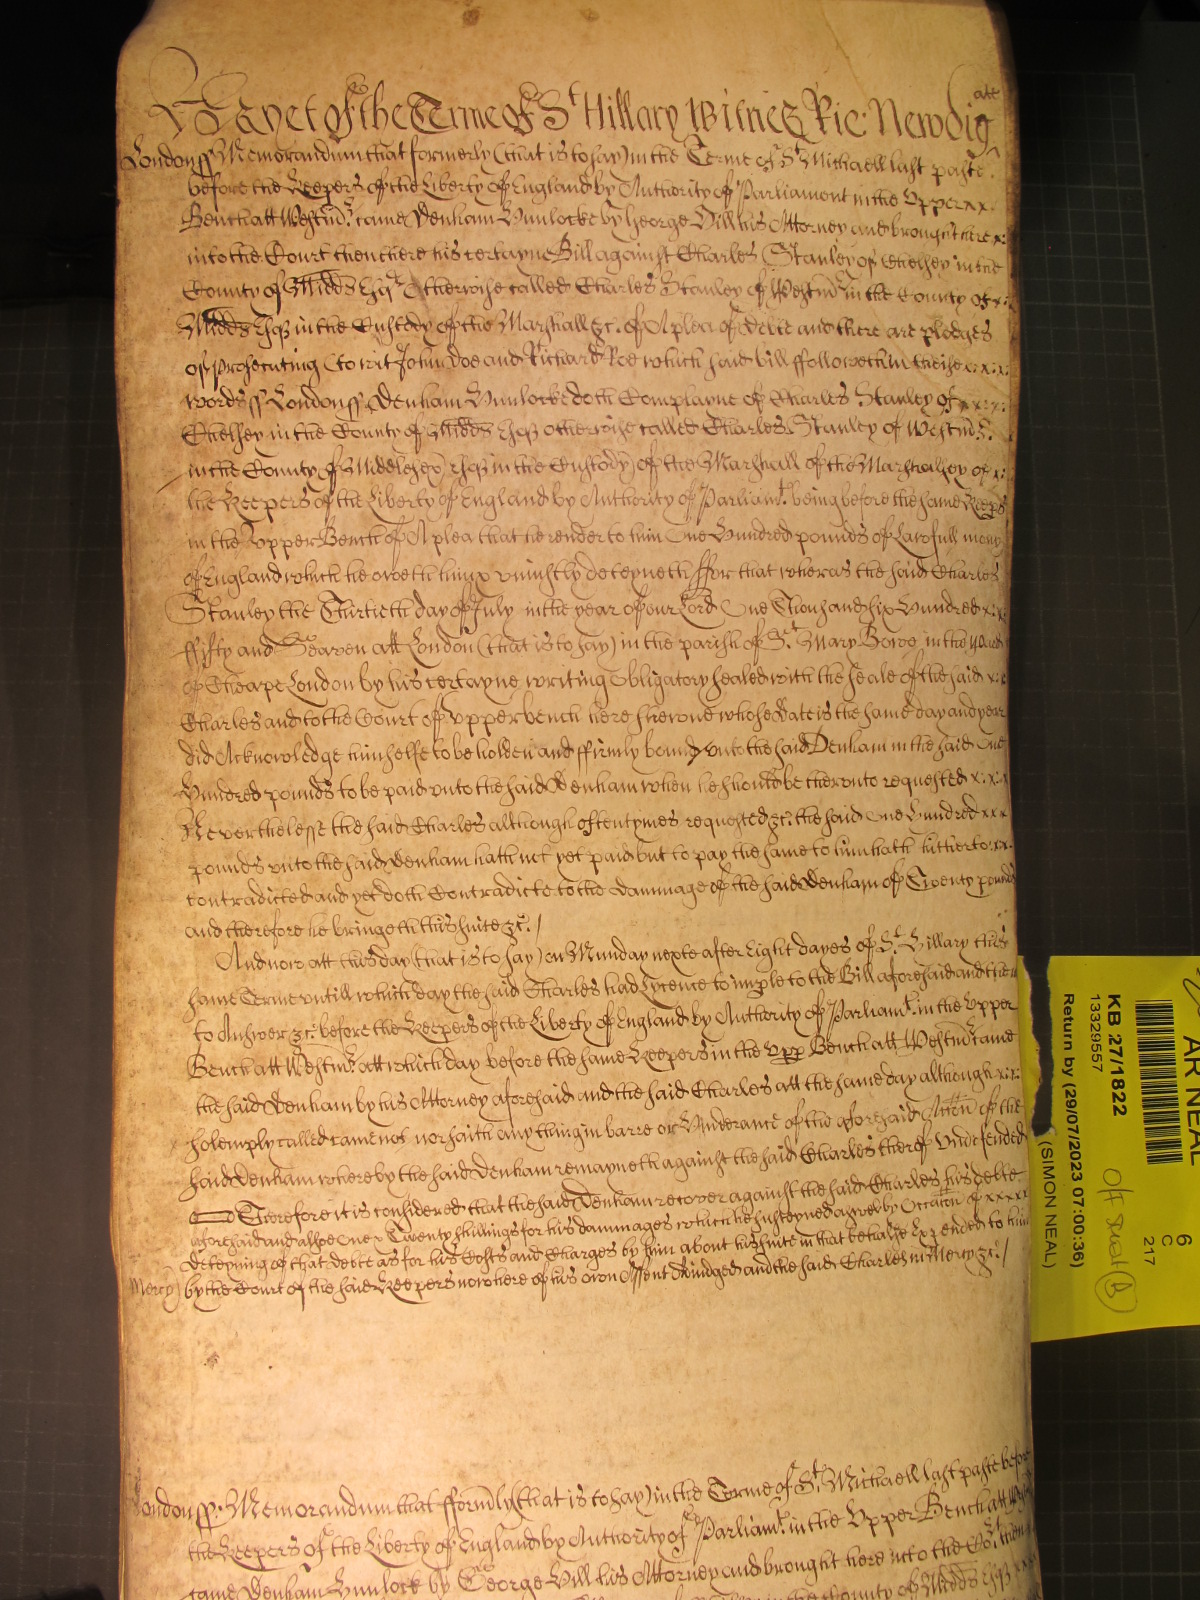 As yet of the Terme of St Hillary Witnes Ric: Newdigatt
London ss Memorandum that formerly (that is to say) in the Terme of St Michaell last paste
before the Keepers of the Liberty of England by Authority of Parliament in the Upper x x
Bench att Westmr. came Denham Hunlocke by George Hill his Attorney and brought here x:
into the Court then there his certayne Bill against Charles Stanley of Chelsey in the
County of Midds Esqr. Otherwise called Charles Stanley of Westmr in the County of x:
Midds Esqr in the Custody of the Marshall &c. of A plea of debte and there are pledges
of prosecuting (to wit John Doe and Richard Roe which said bill ffolloweth in theise x:x:x:
words ss London ss Denham Hunlocke doth Complayne of Charles Stanley of x x:x:
Chelsey in the County of Midds Esqr otherwise called Charles Stanley of Westmr.
in the County of Middlesex) Esqr in the Custody) of the Marshall of the Marshalsey of x:
the Keepers of the Liberty of England by Authority of Parliamt. being before the same Keeps
in the Upper Bench of A plea that he render to him One Hundred pounds of Lawfull mony
of England which he oweth him x uniustly deteyneth ffor that wheras the said Charles
Stanley the Thirtieth day of July in the year of our Lord One Thousand six Hundred x:x:
ffifty and Seaven att London (that is to say) in the parish of St. Mary Bowe in the Ward
of Cheape London by his certayne writing Obligatory sealed with the seale of the said x:x
Charles and to the Court of Upper bench here shewne whose date is the same day and year
did Acknowledge himselfe to be holden and ffirmly bound unto the said Denham in the said One
Hundred pounds to be paid unto the said Denham when he should be therunto requested x:x:x
Neverthelesse the said Charles although oftentymes requested &c. the said One Hundred x x x
pounds unto the said Denham hath not yet paid but to pay the same to him hath hitherto: x x:
contradicted and yet doth Contradicte to the dammage of the said Denham of Twenty pounds
and therefore he bringeth this suite &c. /
And now att this day (that is to say) on Munday nexte after Eight dayes of St. Hillary this
same Terme untill which day the said Charles had Lycence to imple to the Bill aforesaid and then
to Answer &c. before the Keepers of the Liberty of England by Authority of Parliamt. in the Upper
Bench att Westmr. att which day before the same Keepers in the Upp Bench att Westmr came
the said Denham by his Attorney aforesaid and the said Charles att the same day although x:x:
solemply called came not nor saith any thing in barre or Hinderance of the aforesaid Accon of the
said Denham whereby the said Denham remayneth against the said Charles therof Undefended
Therefore it is considered that the said Denham recover against the said Charles his debte
aforesaid and alsoe One x Twenty shillings for his dammages which he susteyned aswel by Occasion of x x x x x
deteyning of that debte as for his Costs and Charges by him about his suite in that behalfe Expended to him
Mercy) by the Court of the said Keepers now here of his own Assent Adiudged and the said Charles in Mercy &c. /
London ss: Memorandum that fformly (that is to say) in the Terme of St. Michaell last paste before
the Keepers of the Liberty of England by Authority of Parliamt. in the Upper Bench att
came Denham Hunlock by George Hill his Attorney and brought here into the Court then
County of Midds Esqr
AR NEAL
KB 27/1822
13329557
Return by (29/07/2023 07:00:36)
(SIMON NEAL)
6
C
217